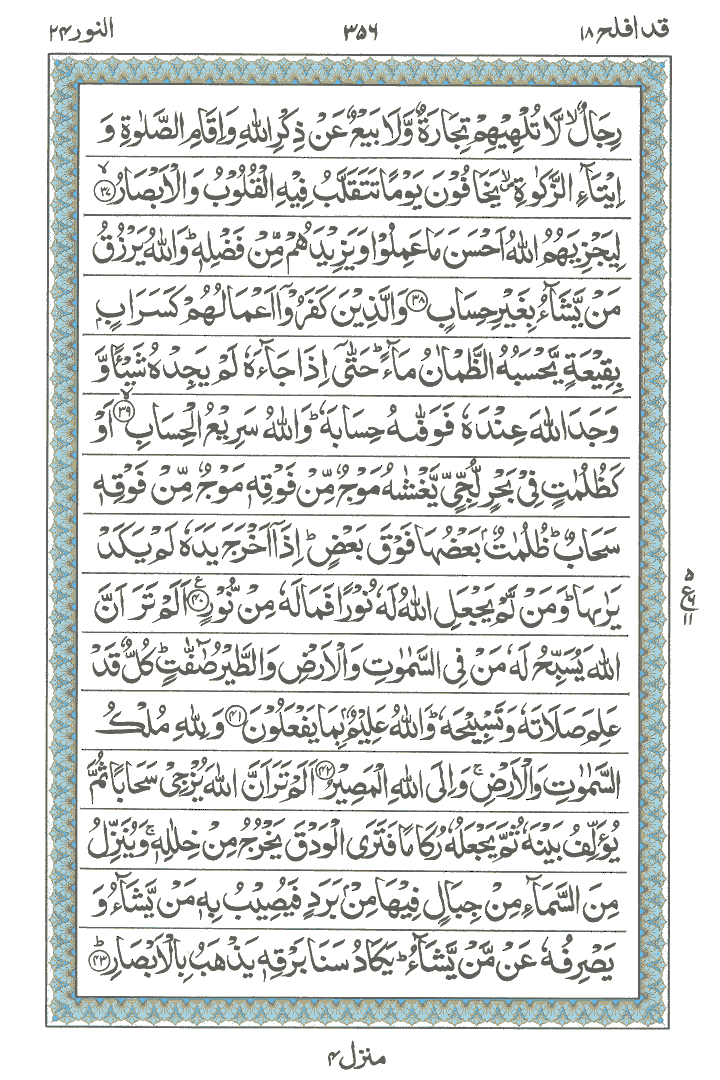 قد افلح ۱۸ ۳۵۶ النور ۲۴
رِجَالٌ ۙ لَّا تُلْهِيْهِمْ تِجَارَةٌ وَّلَا بَيْعٌ عَنْ ذِكْرِ اللّٰهِ وَاِقَامِ الصَّلٰوةِ وَ
اِيْتَآءِ الزَّكٰوةِ ۪ۙ يَخَافُوْنَ يَوْمًا تَتَقَلَّبُ فِيْهِ الْقُلُوْبُ وَالْاَبْصَارُ ۙ ﴿۳۷﴾
لِيَجْزِيَهُمُ اللّٰهُ اَحْسَنَ مَا عَمِلُوْا وَيَزِيْدَهُمْ مِّنْ فَضْلِهٖ ؕ وَاللّٰهُ يَرْزُقُ
مَنْ يَّشَآءُ بِغَيْرِ حِسَابٍ ﴿۳۸﴾ وَالَّذِيْنَ كَفَرُوْٓا اَعْمَالُهُمْ كَسَرَابٍۭ
بِقِيْعَةٍ يَّحْسَبُهُ الظَّمْاٰنُ مَآءً ؕ حَتّٰۤى اِذَا جَآءَهٗ لَمْ يَجِدْهُ شَيْـًٔا وَّ
وَجَدَ اللّٰهَ عِنْدَهٗ فَوَفّٰىهُ حِسَابَهٗ ؕ وَاللّٰهُ سَرِيْعُ الْحِسَابِ ۙ ﴿۳۹﴾ اَوْ
كَظُلُمٰتٍ فِيْ بَحْرٍ لُّجِّيٍّ يَّغْشٰىهُ مَوْجٌ مِّنْ فَوْقِهٖ مَوْجٌ مِّنْ فَوْقِهٖ
سَحَابٌ ؕ ظُلُمٰتٌۢ بَعْضُهَا فَوْقَ بَعْضٍ ؕ اِذَآ اَخْرَجَ يَدَهٗ لَمْ يَكَدْ
يَرٰىهَا ؕ وَمَنْ لَّمْ يَجْعَلِ اللّٰهُ لَهٗ نُوْرًا فَمَا لَهٗ مِنْ نُّوْرٍ ﴿۴۰﴾ ع اَلَمْ تَرَ اَنَّ
اللّٰهَ يُسَبِّحُ لَهٗ مَنْ فِي السَّمٰوٰتِ وَالْاَرْضِ وَالطَّيْرُ صٰٓفّٰتٍ ؕ كُلٌّ قَدْ
عَلِمَ صَلَاتَهٗ وَتَسْبِيْحَهٗ ؕ وَاللّٰهُ عَلِيْمٌۢ بِمَا يَفْعَلُوْنَ ﴿۴۱﴾ وَلِلّٰهِ مُلْكُ
السَّمٰوٰتِ وَالْاَرْضِ ۚ وَاِلَى اللّٰهِ الْمَصِيْرُ ﴿۴۲﴾ اَلَمْ تَرَ اَنَّ اللّٰهَ يُزْجِيْ سَحَابًا ثُمَّ
يُؤَلِّفُ بَيْنَهٗ ثُمَّ يَجْعَلُهٗ رُكَامًا فَتَرَى الْوَدْقَ يَخْرُجُ مِنْ خِلٰلِهٖ ۚ وَيُنَزِّلُ
مِنَ السَّمَآءِ مِنْ جِبَالٍ فِيْهَا مِنْۢ بَرَدٍ فَيُصِيْبُ بِهٖ مَنْ يَّشَآءُ وَ
يَصْرِفُهٗ عَنْ مَّنْ يَّشَآءُ ؕ يَكَادُ سَنَا بَرْقِهٖ يَذْهَبُ بِالْاَبْصَارِ ؕ ﴿۴۳﴾
۵
ع ۶
۱۱
منزل ۴